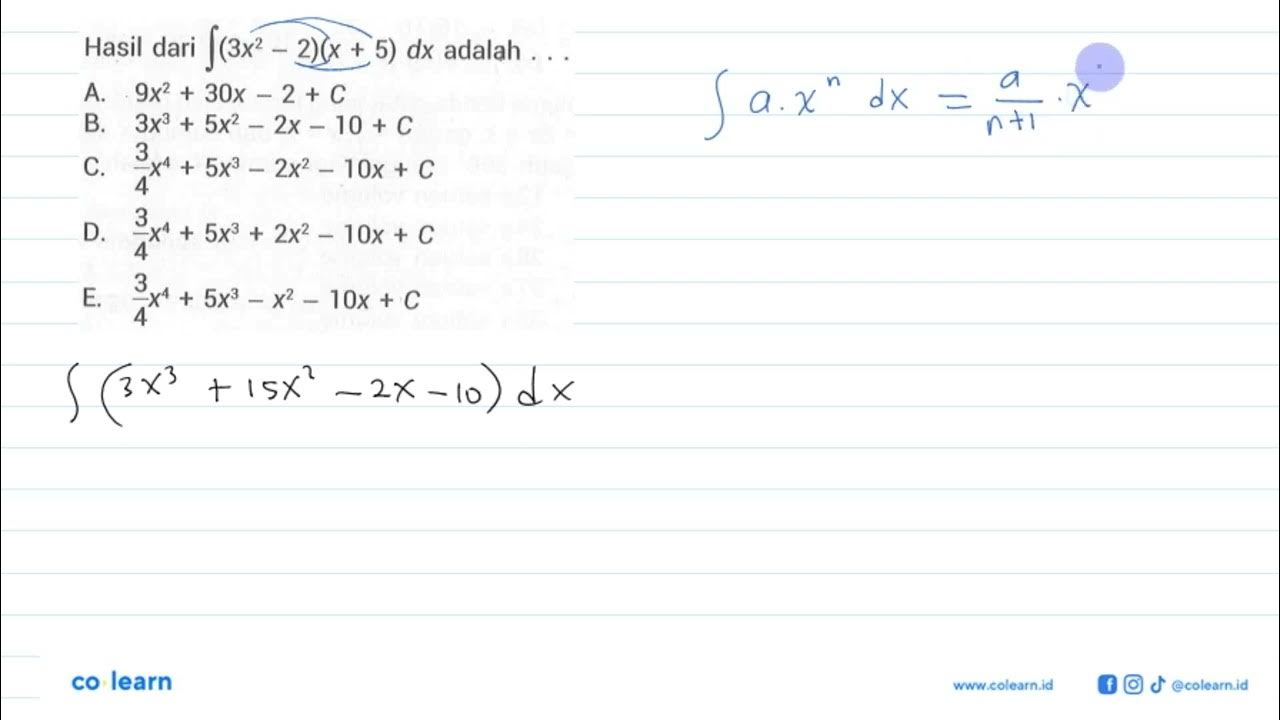 Hasil dari ∫(3x² − 2)(x + 5) dx adalah . . .
A. 9x² + 30x − 2 + C
B. 3x³ + 5x² − 2x − 10 + C
C. 3/4x⁴ + 5x³ − 2x² − 10x + C
D. 3/4x⁴ + 5x³ + 2x² − 10x + C
E. 3/4x⁴ + 5x³ − x² − 10x + C
∫ a . xⁿ dx = a/n+1 . x
∫ (3x³ + 15x² − 2x − 10) dx
co·learn
www.colearn.id
@colearn.id